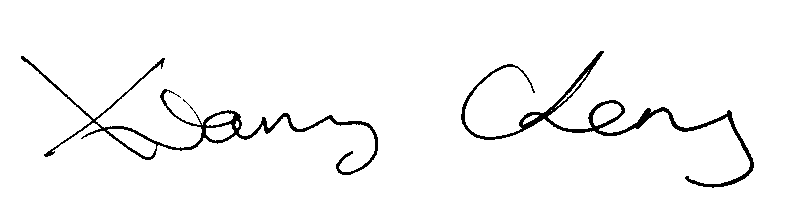 Xiang Cheng